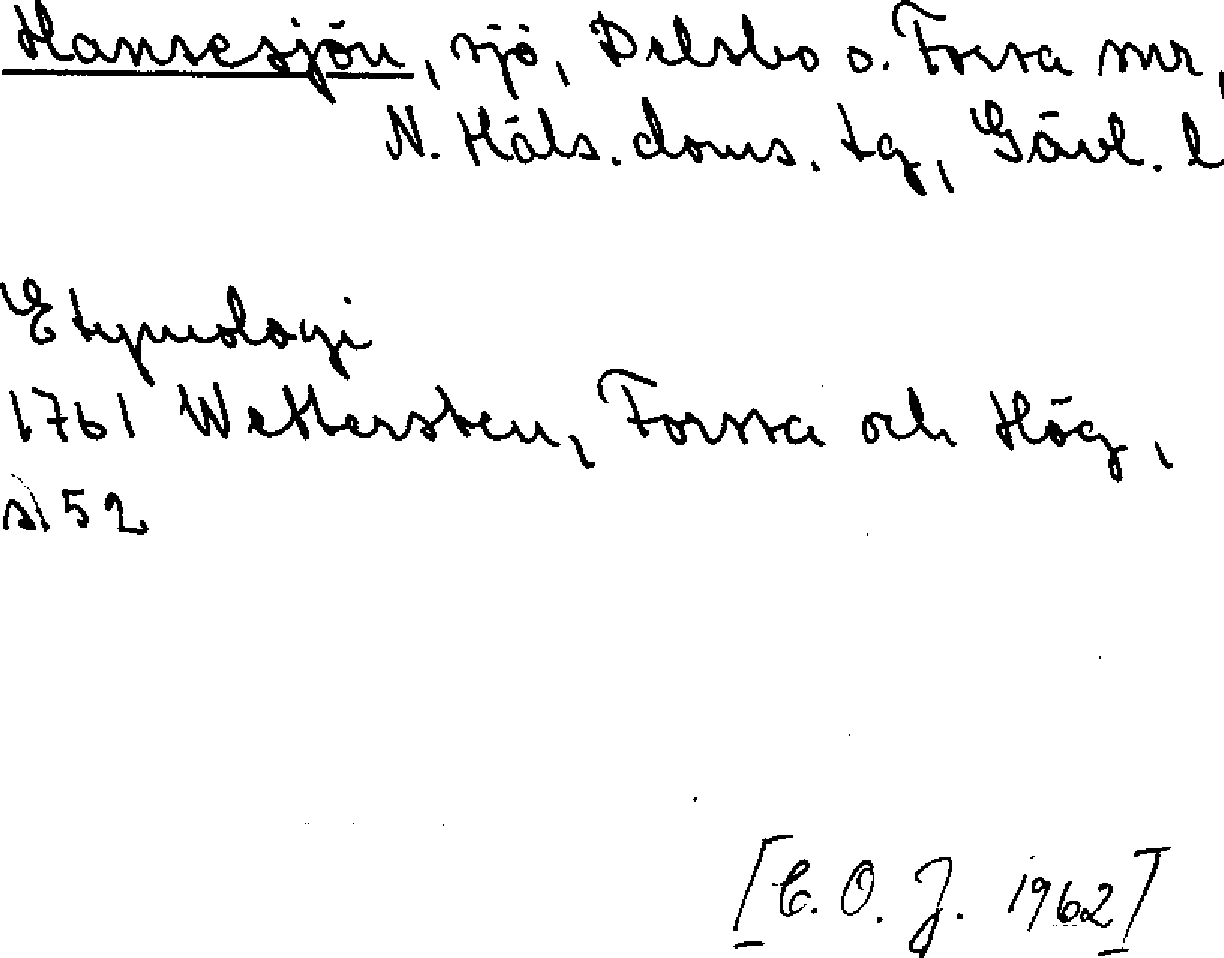 Hansesjön, sjö, Delsbo o. Forsa snr,
N. Häls. doms. tg, Gävl. l
Etymologi
1761 Wettersten, Forssa och Hög,
s 52
[C. O. J. 1962]